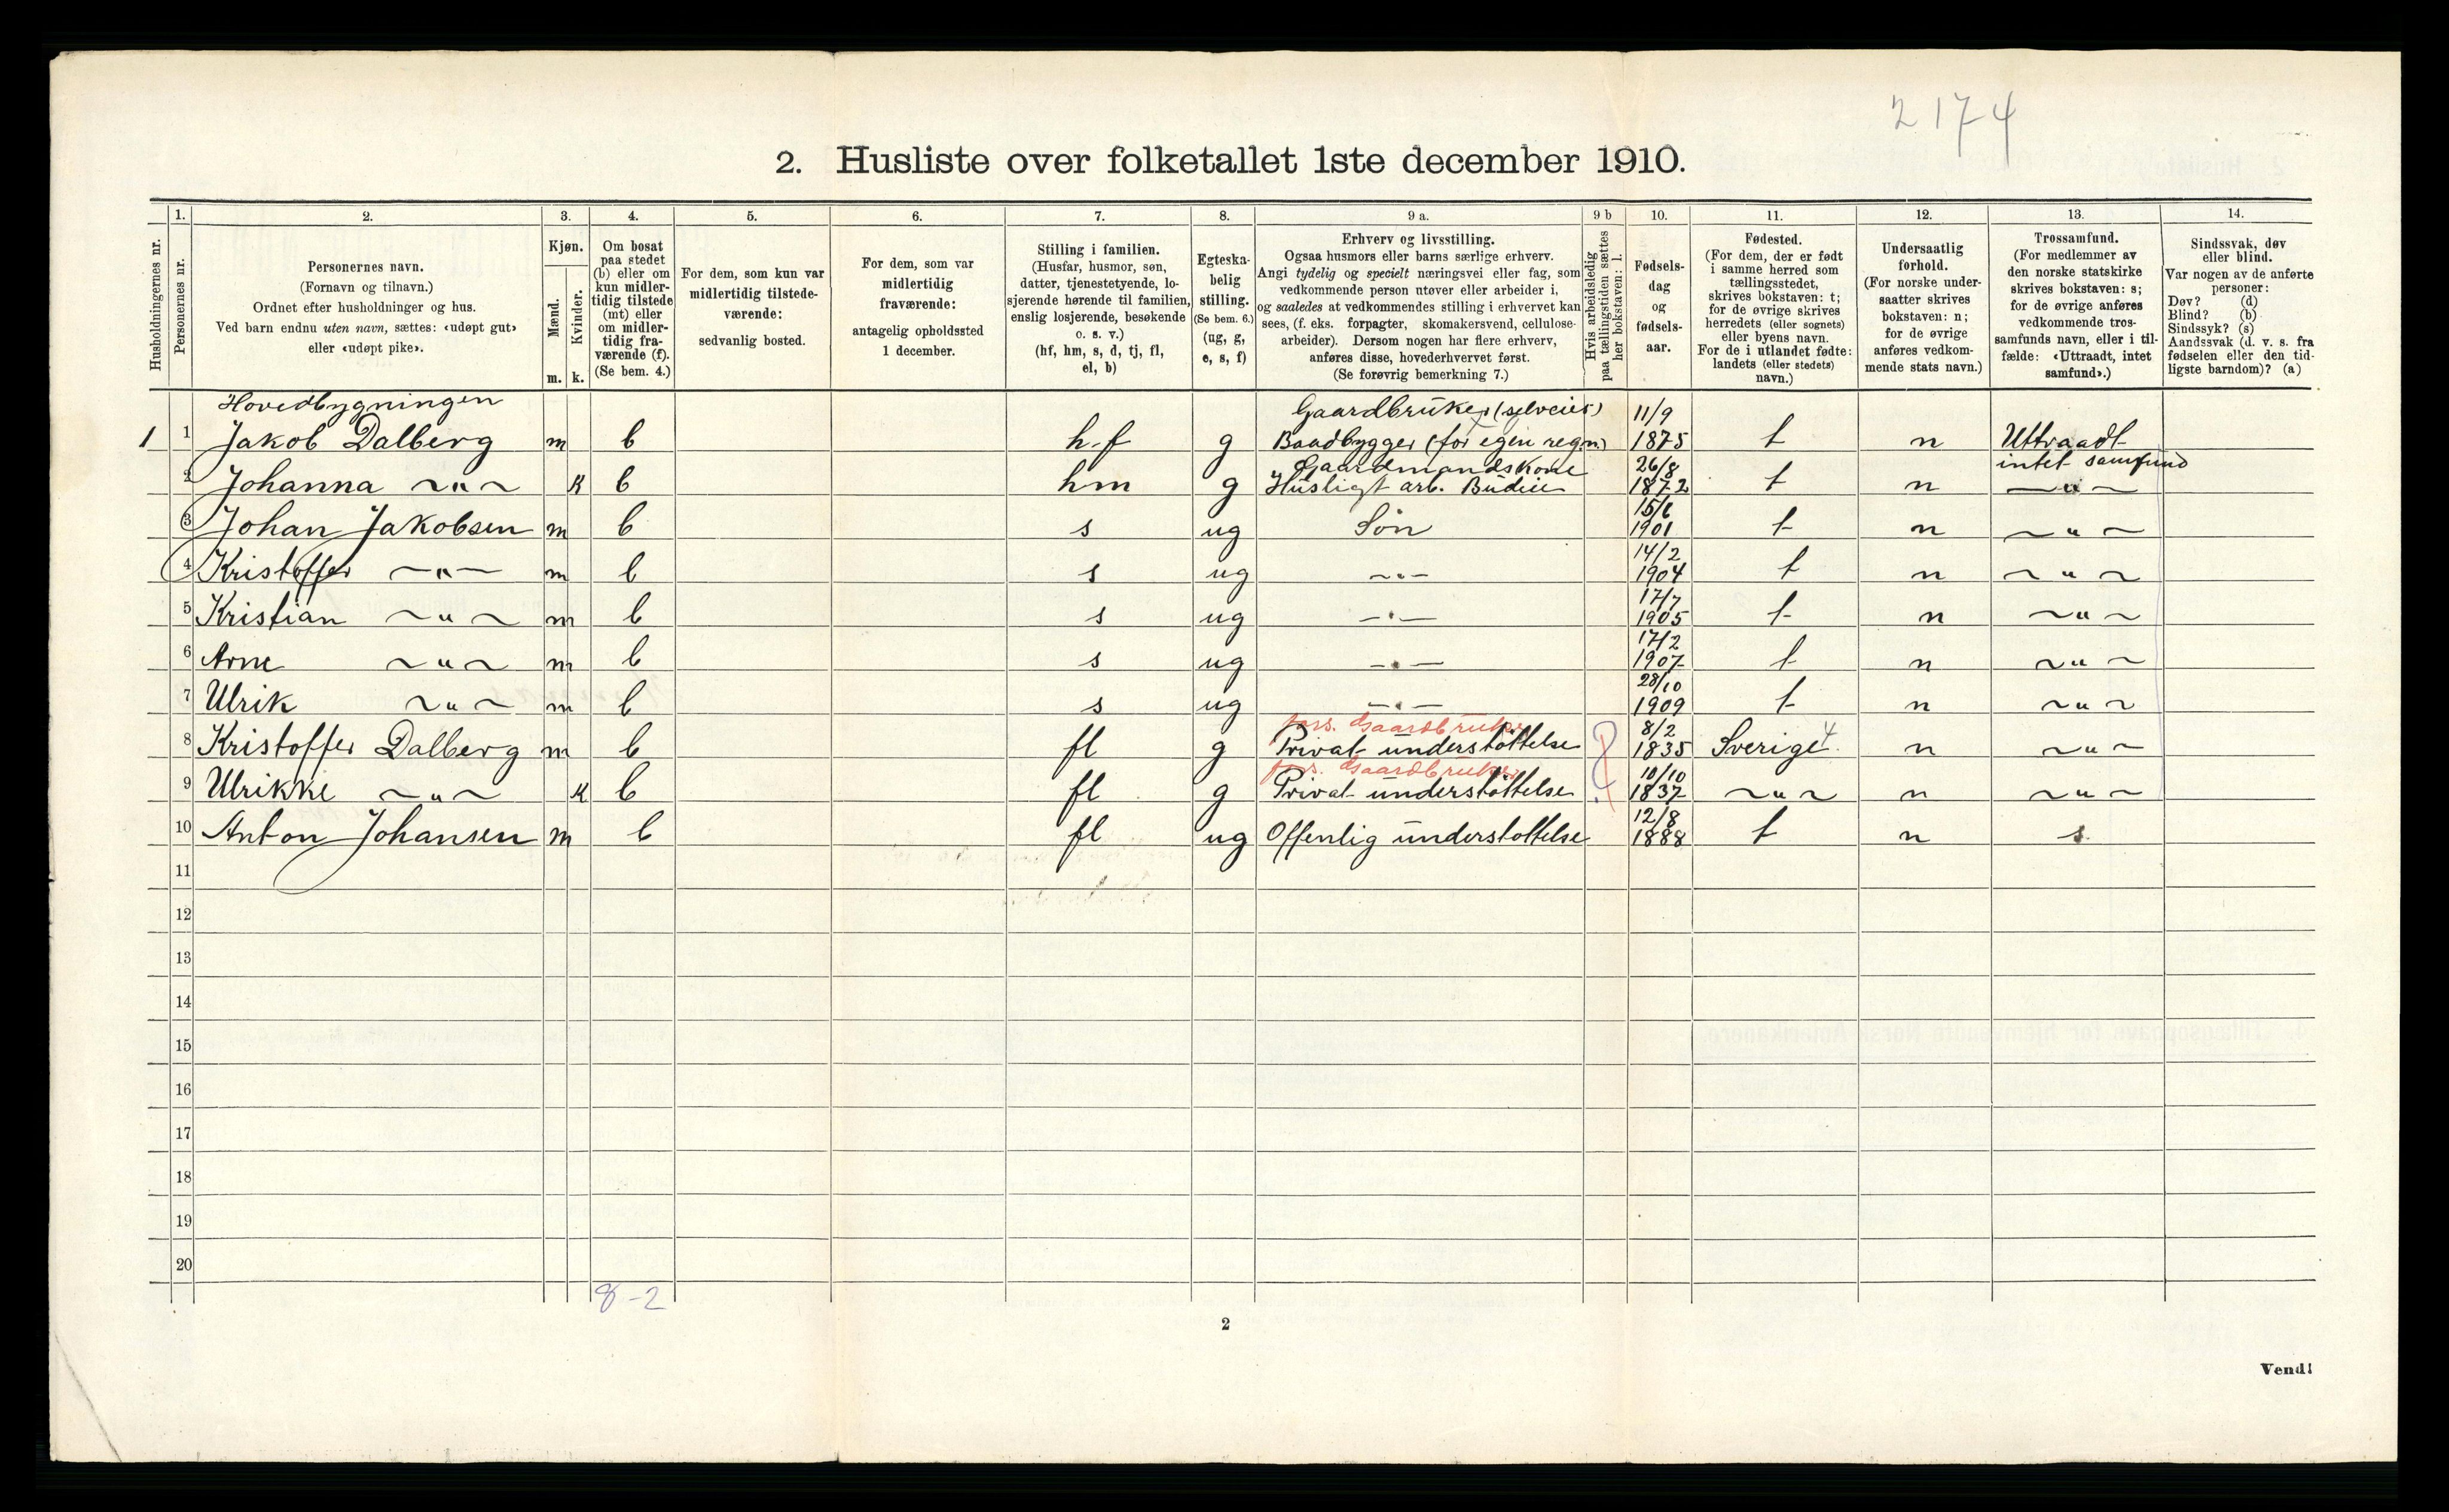 2174
2. Husliste over folketallet 1ste december 1910.
Husholdningernes nr.
1.
Personernes nr.
2.
Personernes navn.
(Fornavn og tilnavn.)
Ordnet efter husholdninger og hus.
Ved barn endnu uten navn, sættes: «udøpt gut»
eller «udøpt pike».
3.
Kjøn.
Mænd.
Kvinder.
m. k.
4.
Om bosat
paa stedet
(b) eller om
kun midler-
tidig tilstede
(mt) eller
om midler-
tidig fra-
værende (f).
(Se bem. 4.)
5.
For dem, som kun var
midlertidig tilstede-
værende:
sedvanlig bosted.
6.
For dem, som var
midlertidig
fraværende:
antagelig opholdssted
1 december.
7.
Stilling i familien.
(Husfar, husmor, søn,
datter, tjenestetyende, lo-
sjerende hørende til familien,
enslig losjerende, besøkende
o. s. v.)
(hf, hm, s, d, tj, fl,
el, b)
8.
Egteska-
belig
stilling.
(Se bem. 6.)
(ug, g,
e, s, f)
9 a.
Erhverv og livsstilling.
Ogsaa husmors eller barns særlige erhverv.
Angi tydelig og specielt næringsvei eller fag, som
vedkommende person utøver eller arbeider i,
og saaledes at vedkommendes stilling i erhvervet kan
sees, (f. eks. forpagter, skomakersvend, cellulose-
arbeider). Dersom nogen har flere erhverv,
anføres disse, hovederhvervet først.
(Se forøvrig bemerkning 7.)
9 b
Hvis arbeidsledig
paa tællingstiden sættes
her bokstaven: l.
10.
Fødsels-
dag
og
fødsels-
aar.
11.
Fødested.
(For dem, der er født
i samme herred som
tællingsstedet,
skrives bokstaven: t;
for de øvrige skrives
herredets (eller sognets)
eller byens navn.
For de i utlandet fødte:
landets (eller stedets)
navn.)
12.
Undersaatlig
forhold.
(For norske under-
saatter skrives
bokstaven: n;
for de øvrige
anføres vedkom-
mende stats navn.)
13.
Trossamfund.
(For medlemmer av
den norske statskirke
skrives bokstaven: s;
for de øvrige anføres
vedkommende tros-
samfunds navn, eller i til-
fælde: «Uttraadt, intet
samfund».)
14.
Sindssvak, døv
eller blind.
Var nogen av de anførte
personer:
Døv? (d)
Blind? (b)
Sindssyk? (s)
Aandssvak (d. v. s. fra
fødselen eller den tid-
ligste barndom)? (a)
Hovedbygningen Gaardbruker (selveier) 11/9
1 1 Jakob Dalberg m b h f g Baadbygger (for egen regn.) 1875 t n Uttraadt
Gaardmandskone 26/8 intet samfund
2 Johanna ~"~ K b hm g Husligt arb. Budeie 1872 t n ~"~
15/6
3 Johan Jakobsen m b s ug Søn 1901 t n ~"~
14/2
4 Kristoffer ~"~ m b s ug ~"~ 1904 t n ~"~
17/7
5 Kristian ~"~ m b s ug ~"~ 1905 t n ~"~
17/2
6 Arne ~"~ m b s ug ~"~ 1907 t n ~"~
28/10
7 Ulrik ~"~ m b s ug ~"~ 1909 t n ~"~
Gaardbruker 8/2
8 Kristoffer Dalberg m b fl g Privat understøttelse 1835 Sverige 4 n ~"~
Gaardbruker 10/10
9 Ulrikke ~"~ K b fl g Privat understøttelse 1837 ~"~ n ~"~
12/8
10 Anton Johansen m b fl ug Offenlig understøttelse 1888 t n s
11
12
13
14
15
16
17
18
19
20
8-2
2
Vend!